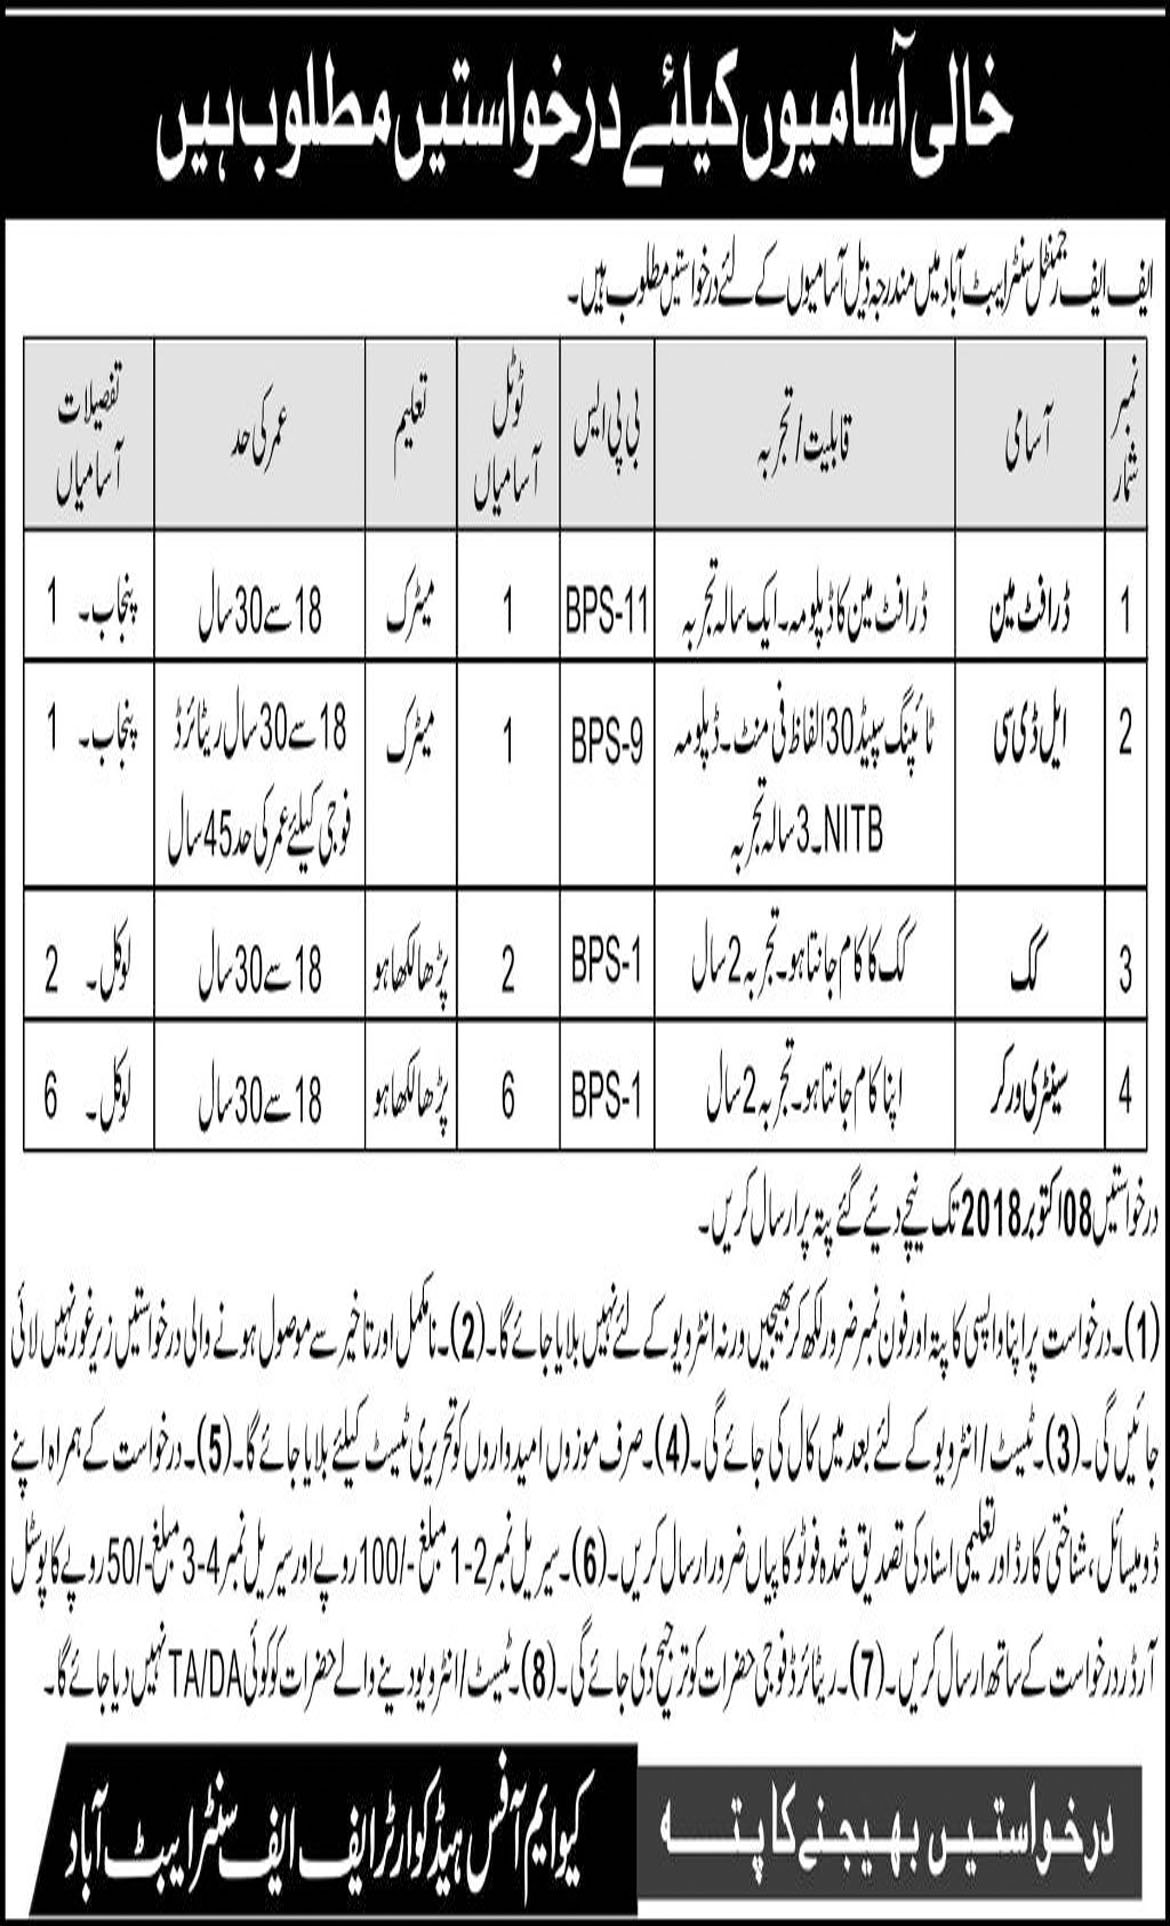 خالی آسامیوں کیلئے درخواستیں مطلوب ہیں
ایف ایف رجمنٹل سنٹر ایبٹ آباد میں مندرجہ ذیل آسامیوں کے لئے درخواستیں مطلوب ہیں۔
نمبر شمار آسامی قابلیت/تجربہ بی پی ایس ٹوٹل آسامیاں تعلیم عمر کی حد تفصیلات آسامیاں
1 ڈرافٹ مین ڈرافٹ مین کا ڈپلومہ۔ ایک سالہ تجربہ BPS-11 1 میٹرک 18 سے 30 سال پنجاب۔ 1
2 ایل ڈی سی ٹائپنگ سپیڈ 30 الفاظ فی منٹ۔ ڈپلومہ NITB۔ 3 سالہ تجربہ BPS-9 1 میٹرک 18 سے 30 سال ریٹائرڈ فوجی کیلئے عمر کی حد 45 سال پنجاب۔ 1
3 کک کک کا کام جانتا ہو۔ تجربہ 2 سال BPS-1 2 پڑھا لکھا ہو 18 سے 30 سال لوکل۔ 2
4 سینٹری ورکر اپنا کام جانتا ہو۔ تجربہ 2 سال BPS-1 6 پڑھا لکھا ہو 18 سے 30 سال لوکل۔ 6
درخواستیں 08 اکتوبر 2018 تک نیچے دیئے گئے پتہ پر ارسال کریں۔
(1)۔ درخواست پر اپنا واپسی کا پتہ اور فون نمبر ضرور لکھ کر بھیجیں ورنہ انٹرویو کے لئے نہیں بلایا جائے گا۔ (2)۔ نامکمل اور تاخیر سے موصول ہونے والی درخواستیں زیر غور نہیں لائی
جائیں گی۔ (3)۔ ٹیسٹ/انٹرویو کے لئے بعد میں کال کی جائے گی۔ (4)۔ صرف موزوں امیدواروں کو تحریری ٹیسٹ کیلئے بلایا جائے گا۔ (5)۔ درخواست کے ہمراہ اپنے
ڈومیسائل، شناختی کارڈ اور تعلیمی اسناد کی تصدیق شدہ فوٹو کاپیاں ضرور ارسال کریں۔ (6)۔ سیریل نمبر 2-1 مبلغ -/100 روپے اور سیریل نمبر 4-3 مبلغ -/50 روپے کا پوسٹل
آرڈر درخواست کے ساتھ ارسال کریں۔ (7)۔ ریٹائرڈ فوجی حضرات کو ترجیح دی جائے گی۔ (8)۔ ٹیسٹ/انٹرویو دینے والے حضرات کو کوئی TA/DA نہیں دیا جائے گا۔
درخواستیں بھیجنے کا پتہ
کیو ایم آفس ہیڈ کوارٹر ایف ایف سنٹر ایبٹ آباد